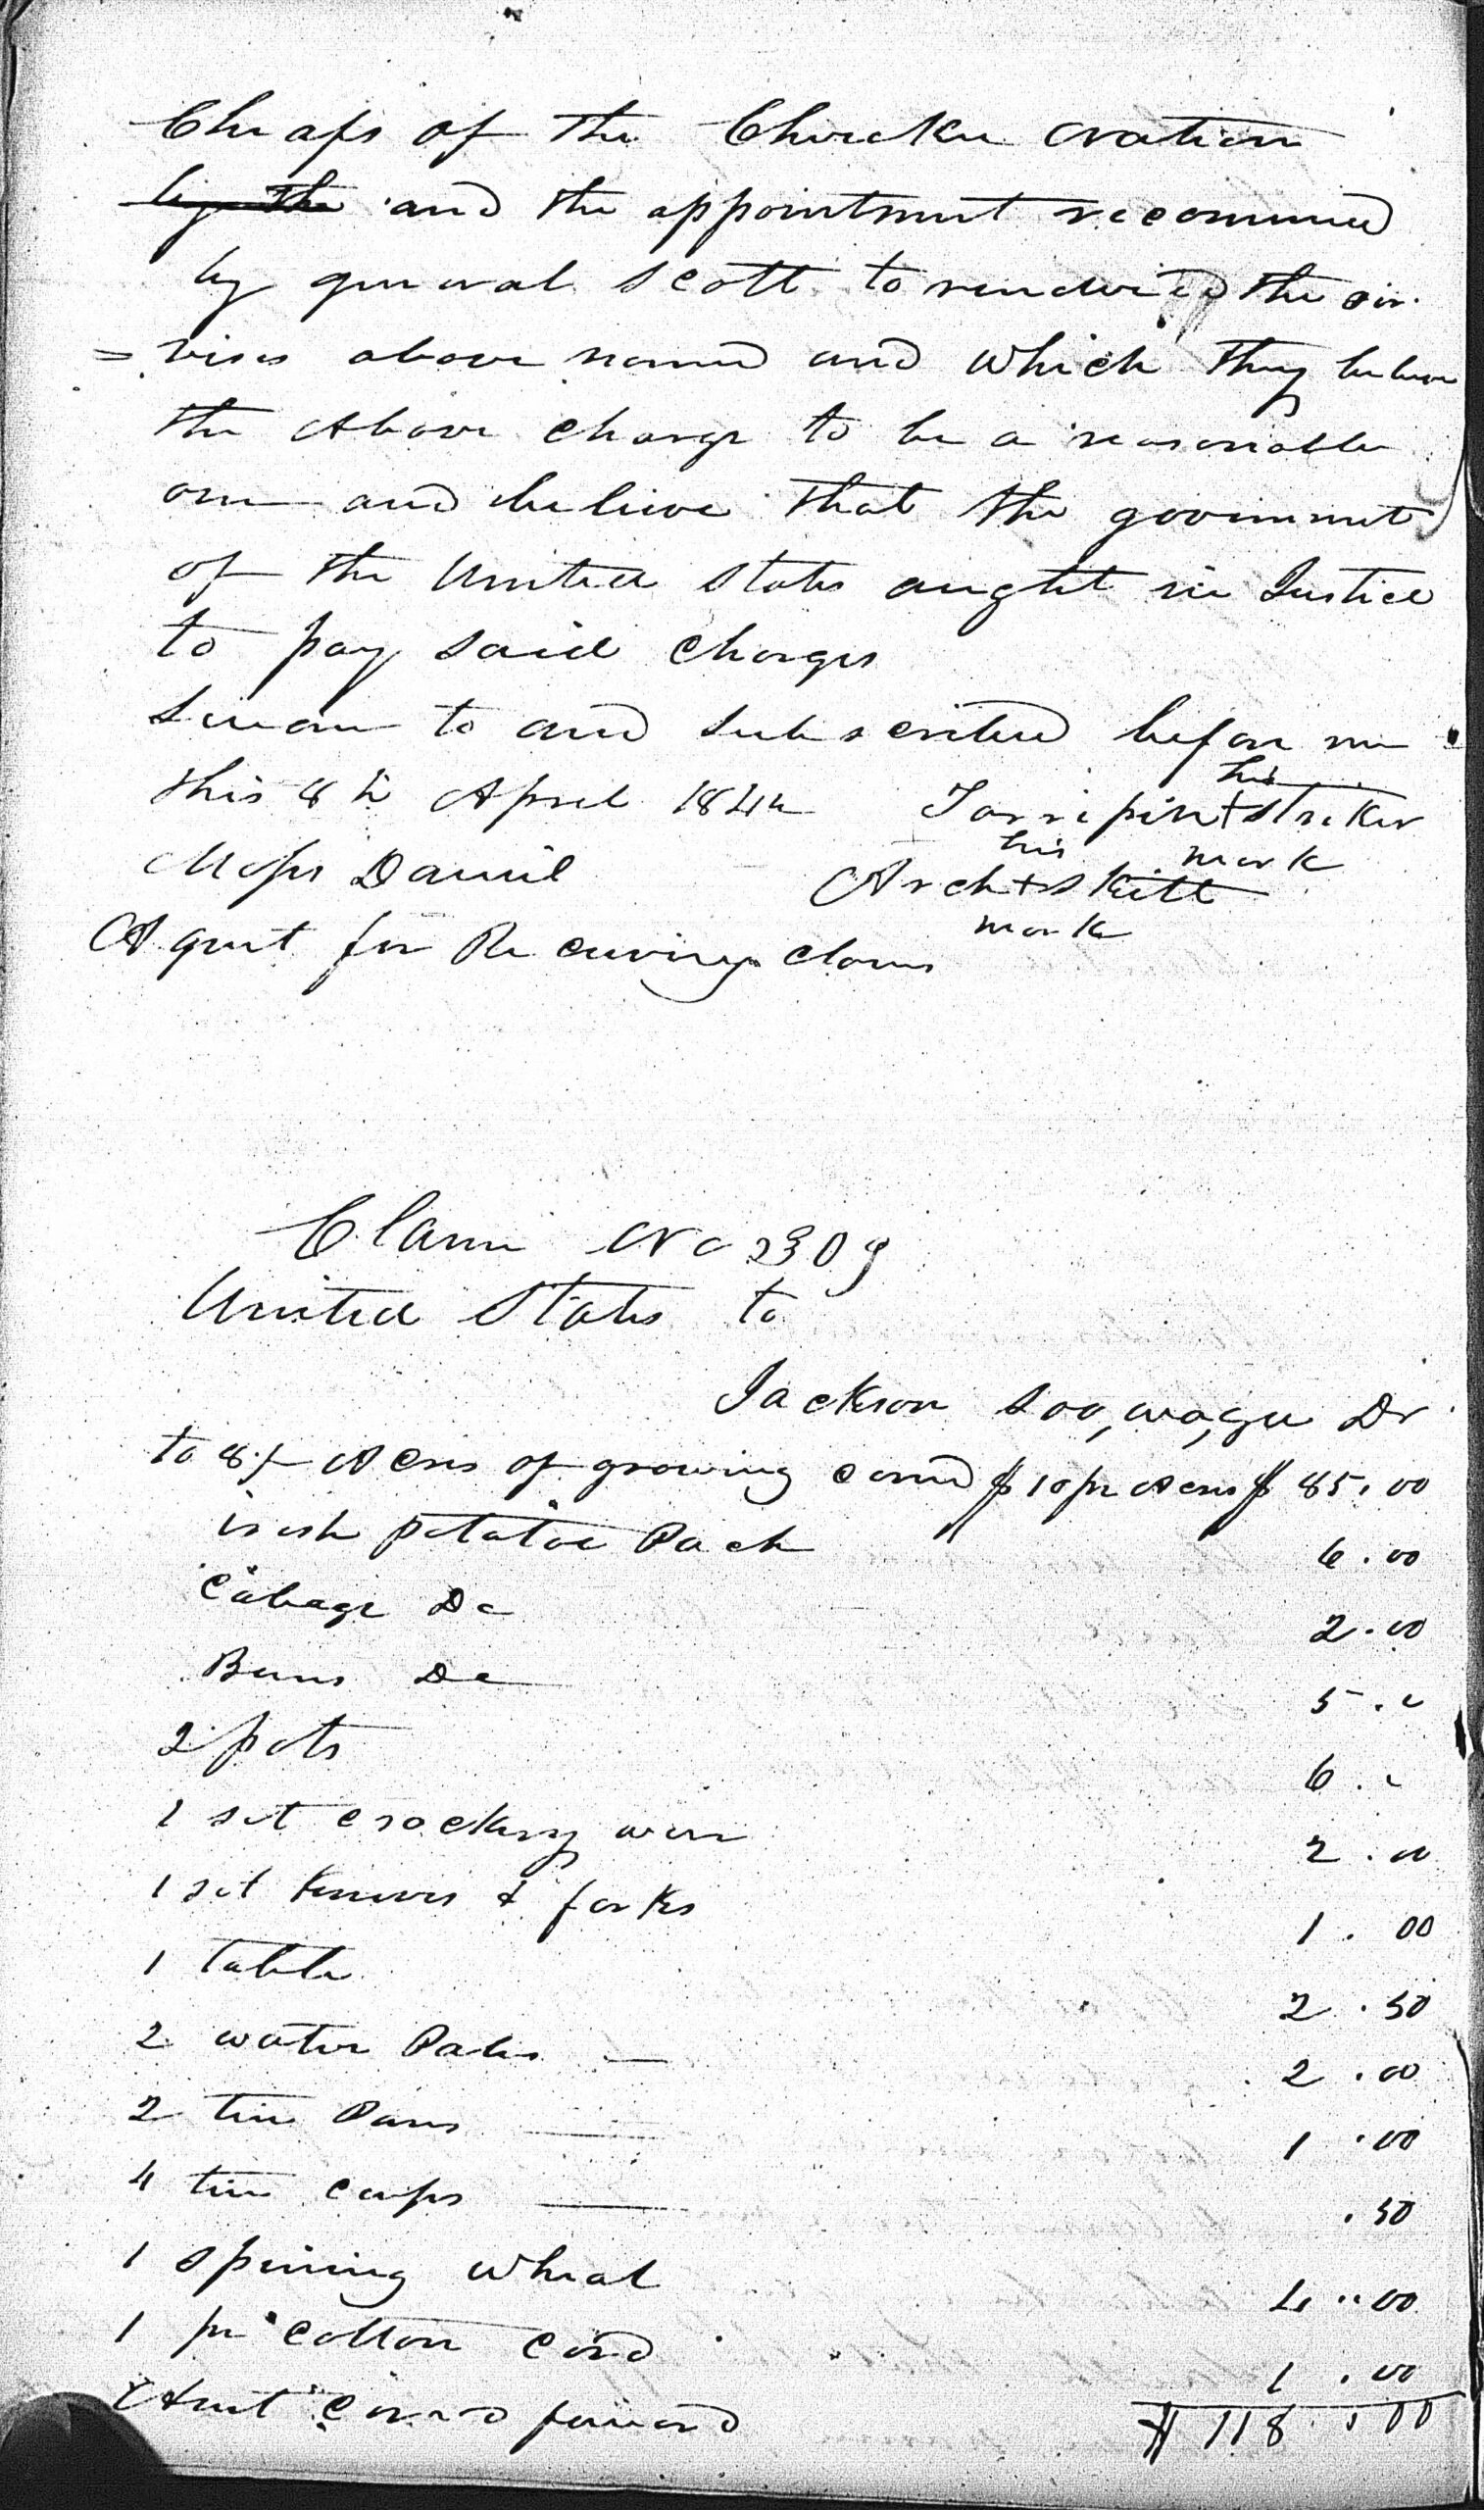 Cheafs of the Cherokee Nation
by the and the appointment recommed
by general Scott to rendered the ser
= vises above named and which they beleve
the Above charge to be a reasonable
one and beleive that the goverment
of the United States aught in Justice
to pay said charges
Sworn to and subscribed before me
this 8th April 1842 Tarripin his + Striker
mark
Moses Daniel Arch his + Skitt
mark
Agent for Receiving claims
Claim No 2309
United States to
Jackson Dr
to 8½ Acres of growing corn @ $10 pr Acres $ 85.00
irish potatoe Pach 6.00
Cabage Do 2.00
Beans Do 5.
2 pots 6.
1 set crockery ware 2.00
1 set knives & forks 1.00
1 table 2.50
2 water Pales 2.00
2 tin Pans 1.00
4 tin cups .50
1 spining wheal 4.00
1 pr Cotton Card 1.00
Amt Carrd forward $ 118.00